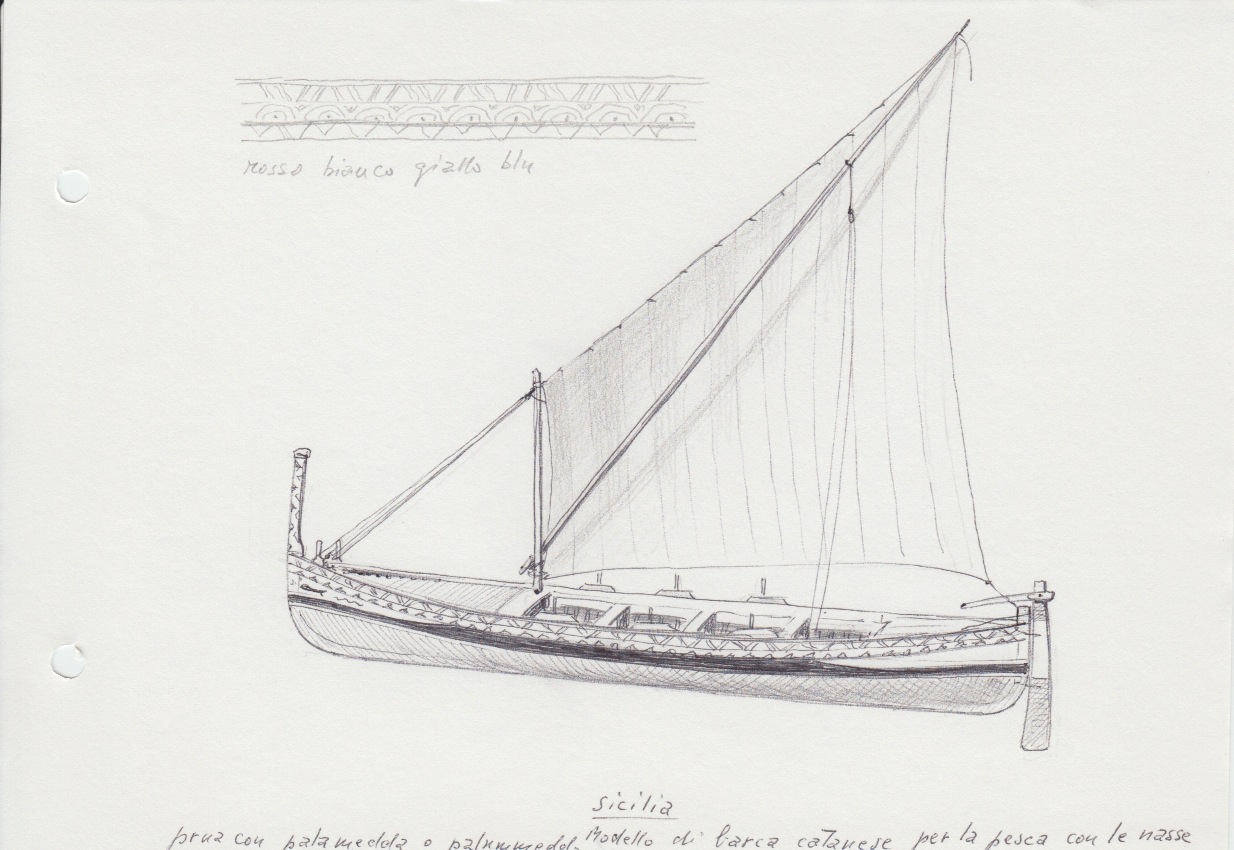 rosso bianco giallo blu
sicilia
prua con palamedda o palummedd
Modello di barca catanese per la pesca con le nasse